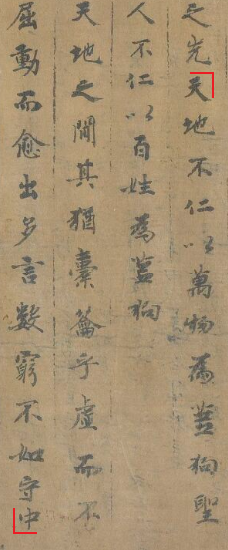 之先天地不仁以萬物為蒭狗聖
人不仁以百姓為蒭狗
天地之間其猶橐籥乎虛而不
屈動而愈出多言數窮不如守中